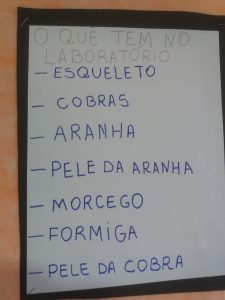 O QUÊ TEM NO
LABORATÓRIO
- ESQUELETO
- COBRAS
- ARANHA
- PELE DA ARANHA
- MORCEGO
- FORMIGA
- PELE DA COBRA